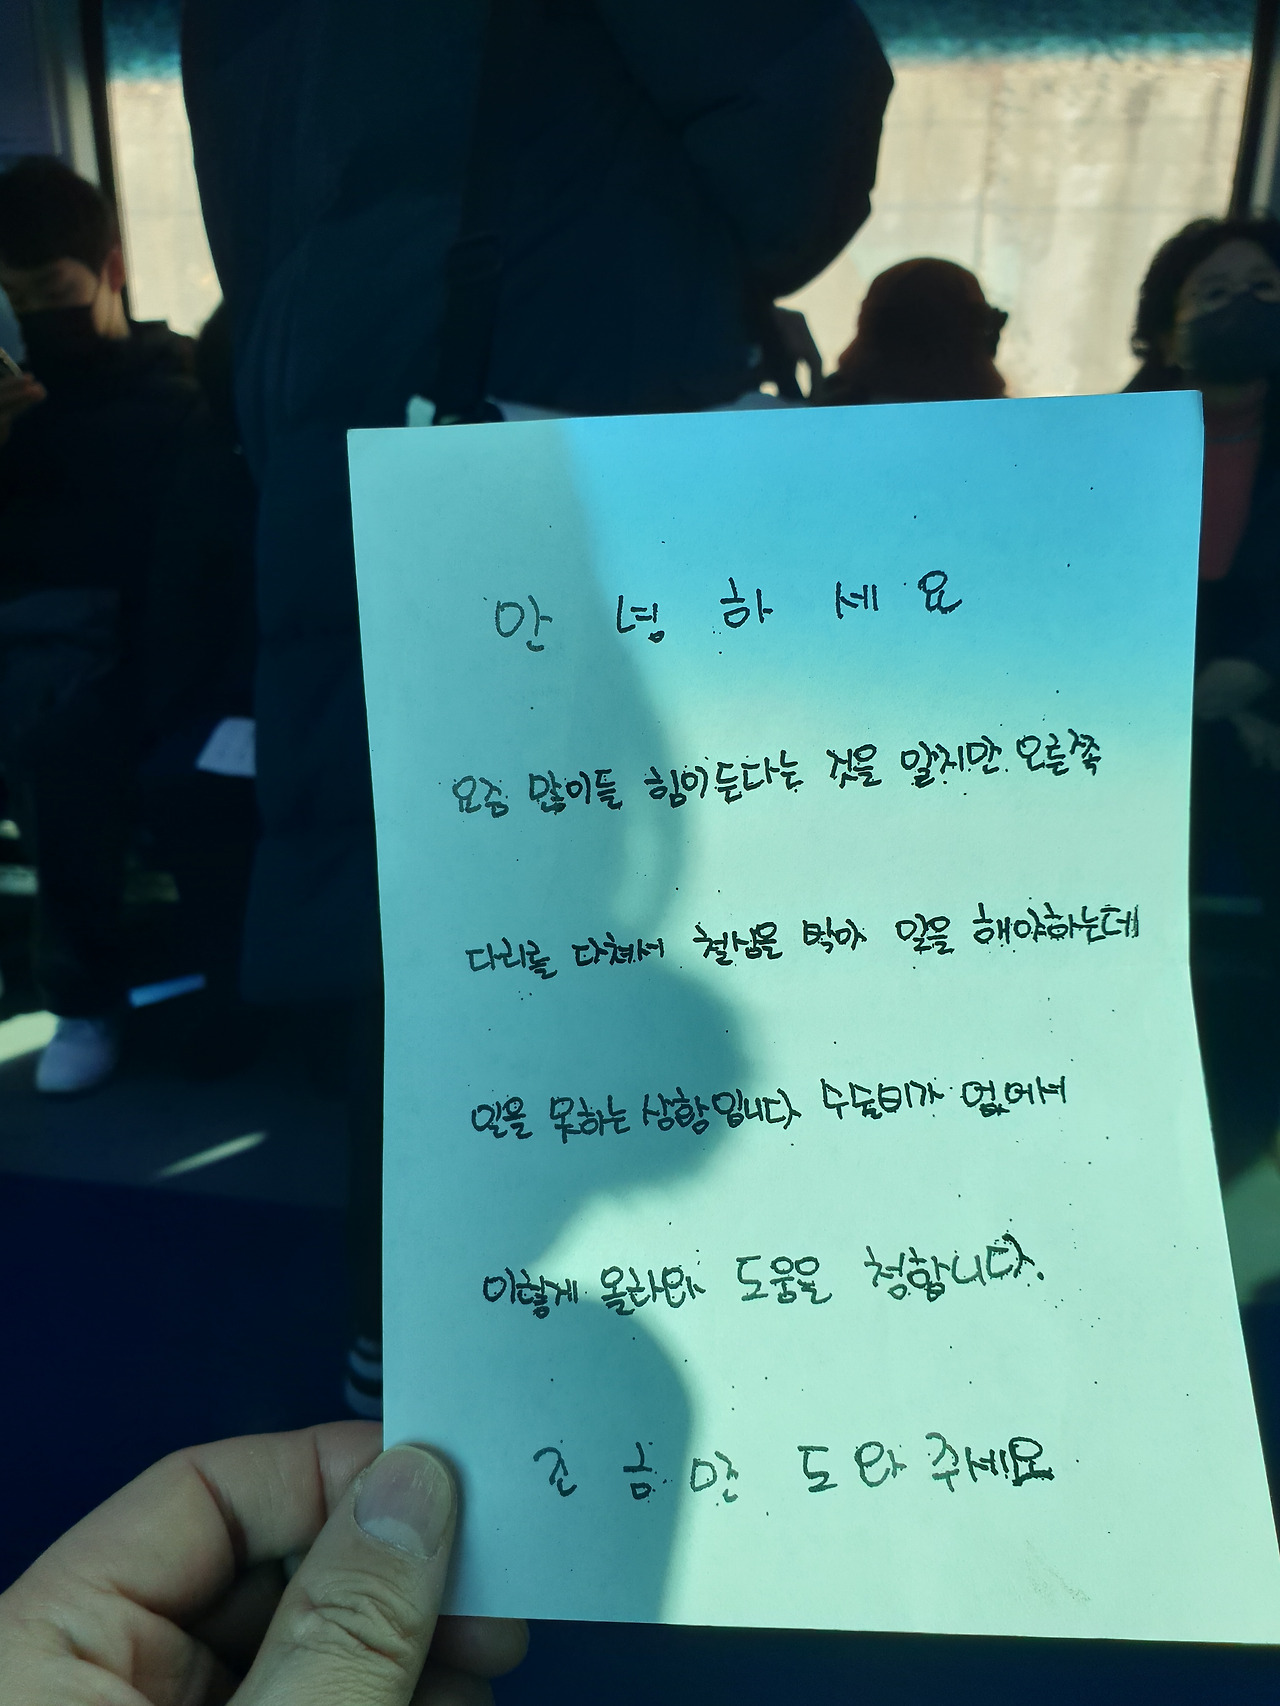 안녕하세요
요즘 많이들 힘이든다는 것을 알지만 오른쪽
다리를 다쳐서 철심을 박아 일을 해야하는데
일을 못하는 상황입니다 수술비가 없어서
이렇게 올라와 도움을 청합니다.
조금만 도와주세요